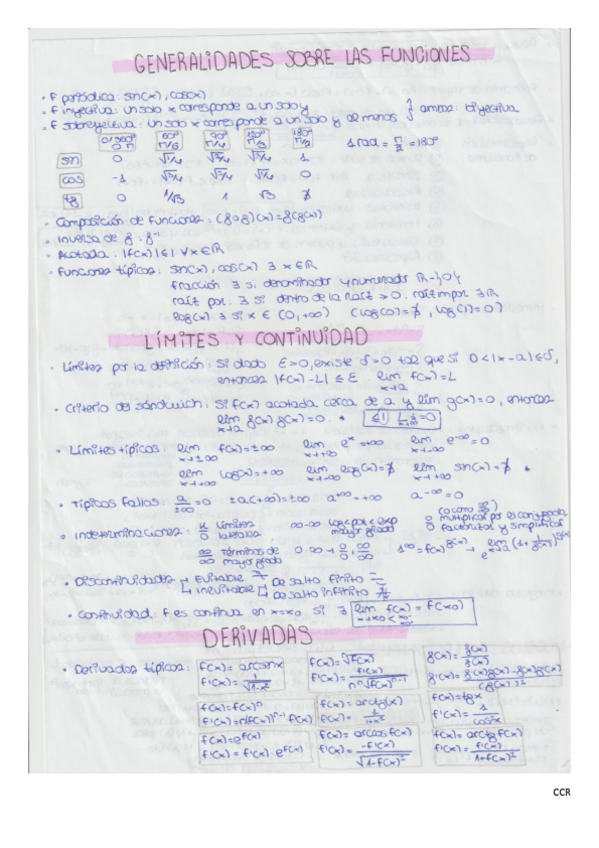 GENERALIDADES SOBRE LAS FUNCIONES
• F periódica: sin(x), cos(x)
• F inyectiva: un solo x corresponde a un solo y
• F sobreyectiva: un solo x corresponde a un solo y al menos } ambas: biyectiva
sin 0 1
cos -1 0
tg 0 1/√3 1 √3 ∄
• Composición de funciones: (f∘g)(x)=f(g(x))
• Inversa de f: f⁻¹
• Acotada: |f(x)|≤1 ∀x∈ℝ
• Funciones típicas: sin(x), cos(x) ∃ x∈ℝ
fracción ∃ si denominador y numerador ℝ-{0}
raíz par: ∃ si dentro de la raíz > 0, raíz impar ∃ ℝ
log(x) ∃ si x ∈ (0,+∞) (log(0)=∄, log(1)=0)
LÍMITES Y CONTINUIDAD
• Límites por la definición: Si dado ε>0, existe δ>0 tal que si 0<|x-a|≤δ,
entonces |f(x)-L| ≤ ε lim x→a f(x)=L
• Criterio de sándwich: Si f(x) acotada cerca de a y lim x→a g(x)=0, entonces
lim x→a f(x)g(x)=0
• Límites típicos: lim x→±∞ f(x)=±∞ lim x→+∞ eˣ=+∞ lim x→-∞ e^-∞=0
lim x→+∞ log(x)=+∞ lim x→-∞ log(x)=∄ lim x→+∞ sin(x)=∄
• Típicos fallos: a/±∞=0 ±a(+∞)=±∞ a^+∞=+∞ a^-∞=0
• Indeterminaciones: k/0 límites laterales ∞-∞ log<pol<exp mayor grado 0/0 multiplicar por el conjugado, factorizar y simplificar
∞/∞ términos de mayor grado 0·∞→0/0, ∞/∞
• Discontinuidades → Evitable
↳ Inevitable De salto finito
De salto infinito
• Continuidad: f es continua en x=x₀ si ∃ lim x→x₀ f(x)=f(x₀)
DERIVADAS
• Derivadas típicas: f(x)=arcsenx
f'(x)=1/√(1-x²)
f(x)=ⁿ√f(x)
f'(x)=f'(x)/(n ⁿ√f(x)ⁿ⁻¹)
f(x)=f(x)ⁿ
f'(x)=n(f(x))ⁿ⁻¹·f'(x)
f(x)=arctg(x)
f'(x)=1/(1+x²)
f(x)=tgx
f'(x)=1/cos²x
f(x)=e^f(x)
f'(x)=f'(x)·e^f(x)
f(x)=arccosf(x)
f'(x)=-f'(x)/√(1-f(x)²)
f(x)=arctgf(x)
f'(x)=f'(x)/(1+f(x)²)
CCR